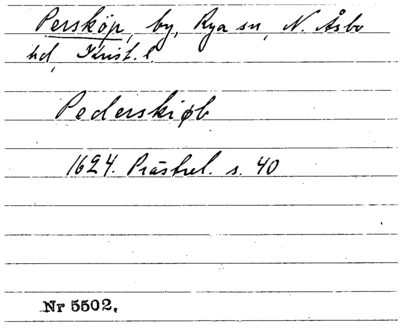 Persköp, by, Rya sn, N. Åsbo
hd, Krist. l.
Pederskiøb
1624. Prästrel. s. 40
Nr 5502.